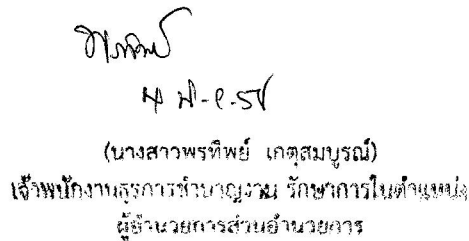 (นางสาวพรทิพย์ เกตุสมบูรณ์)
เจ้าพนักงานธุรการชำนาญงาน รักษาการในตำแหน่ง
ผู้อำนวยการส่วนอำนวยการ